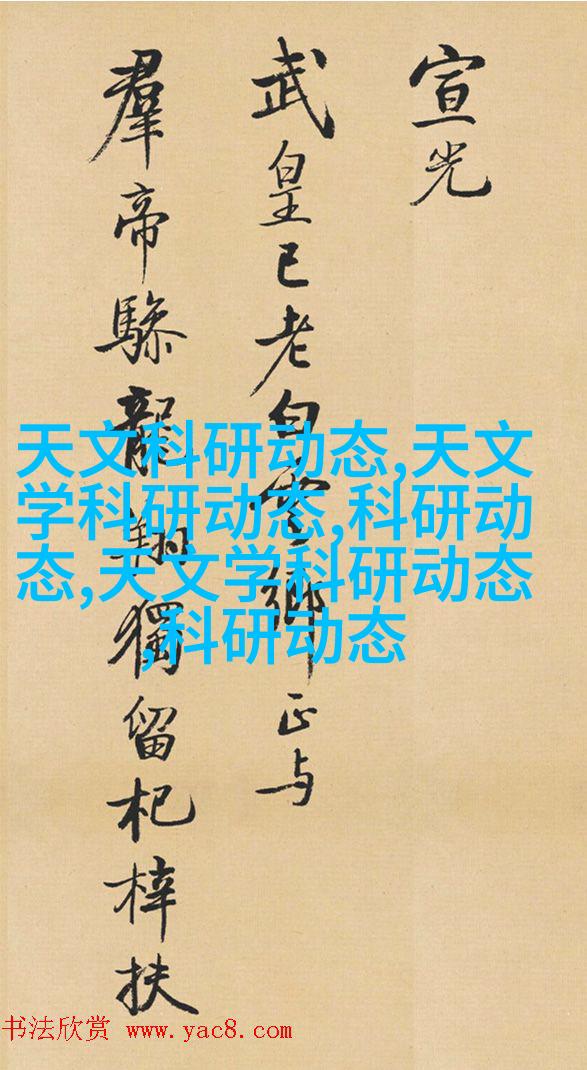 宣光
武皇已老白云鄉正与
羣帝驂龍翔獨留杞梓扶
天文科研动态,天文
学科研动态,科研动
态,天文学科研动态
,科研动态
书法欣赏 www.yac8.com